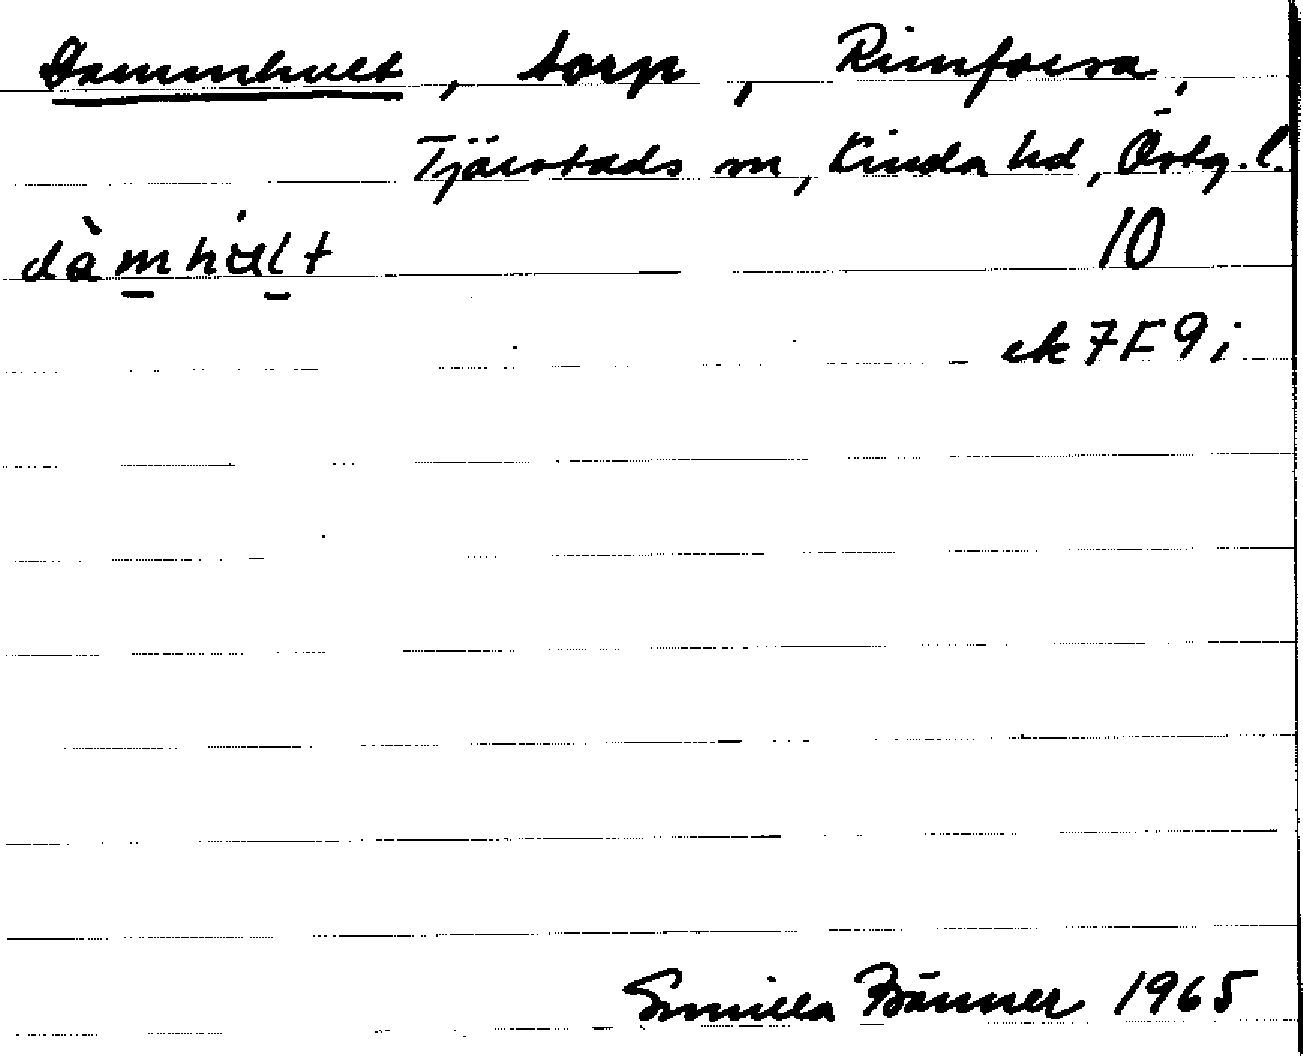 Dammhult, torp, Rimforsa,
Tjärstads sn, Kinda hd, Östg. l.
dàmhu̇lt 10
ek 7F9i
Gunilla 1965